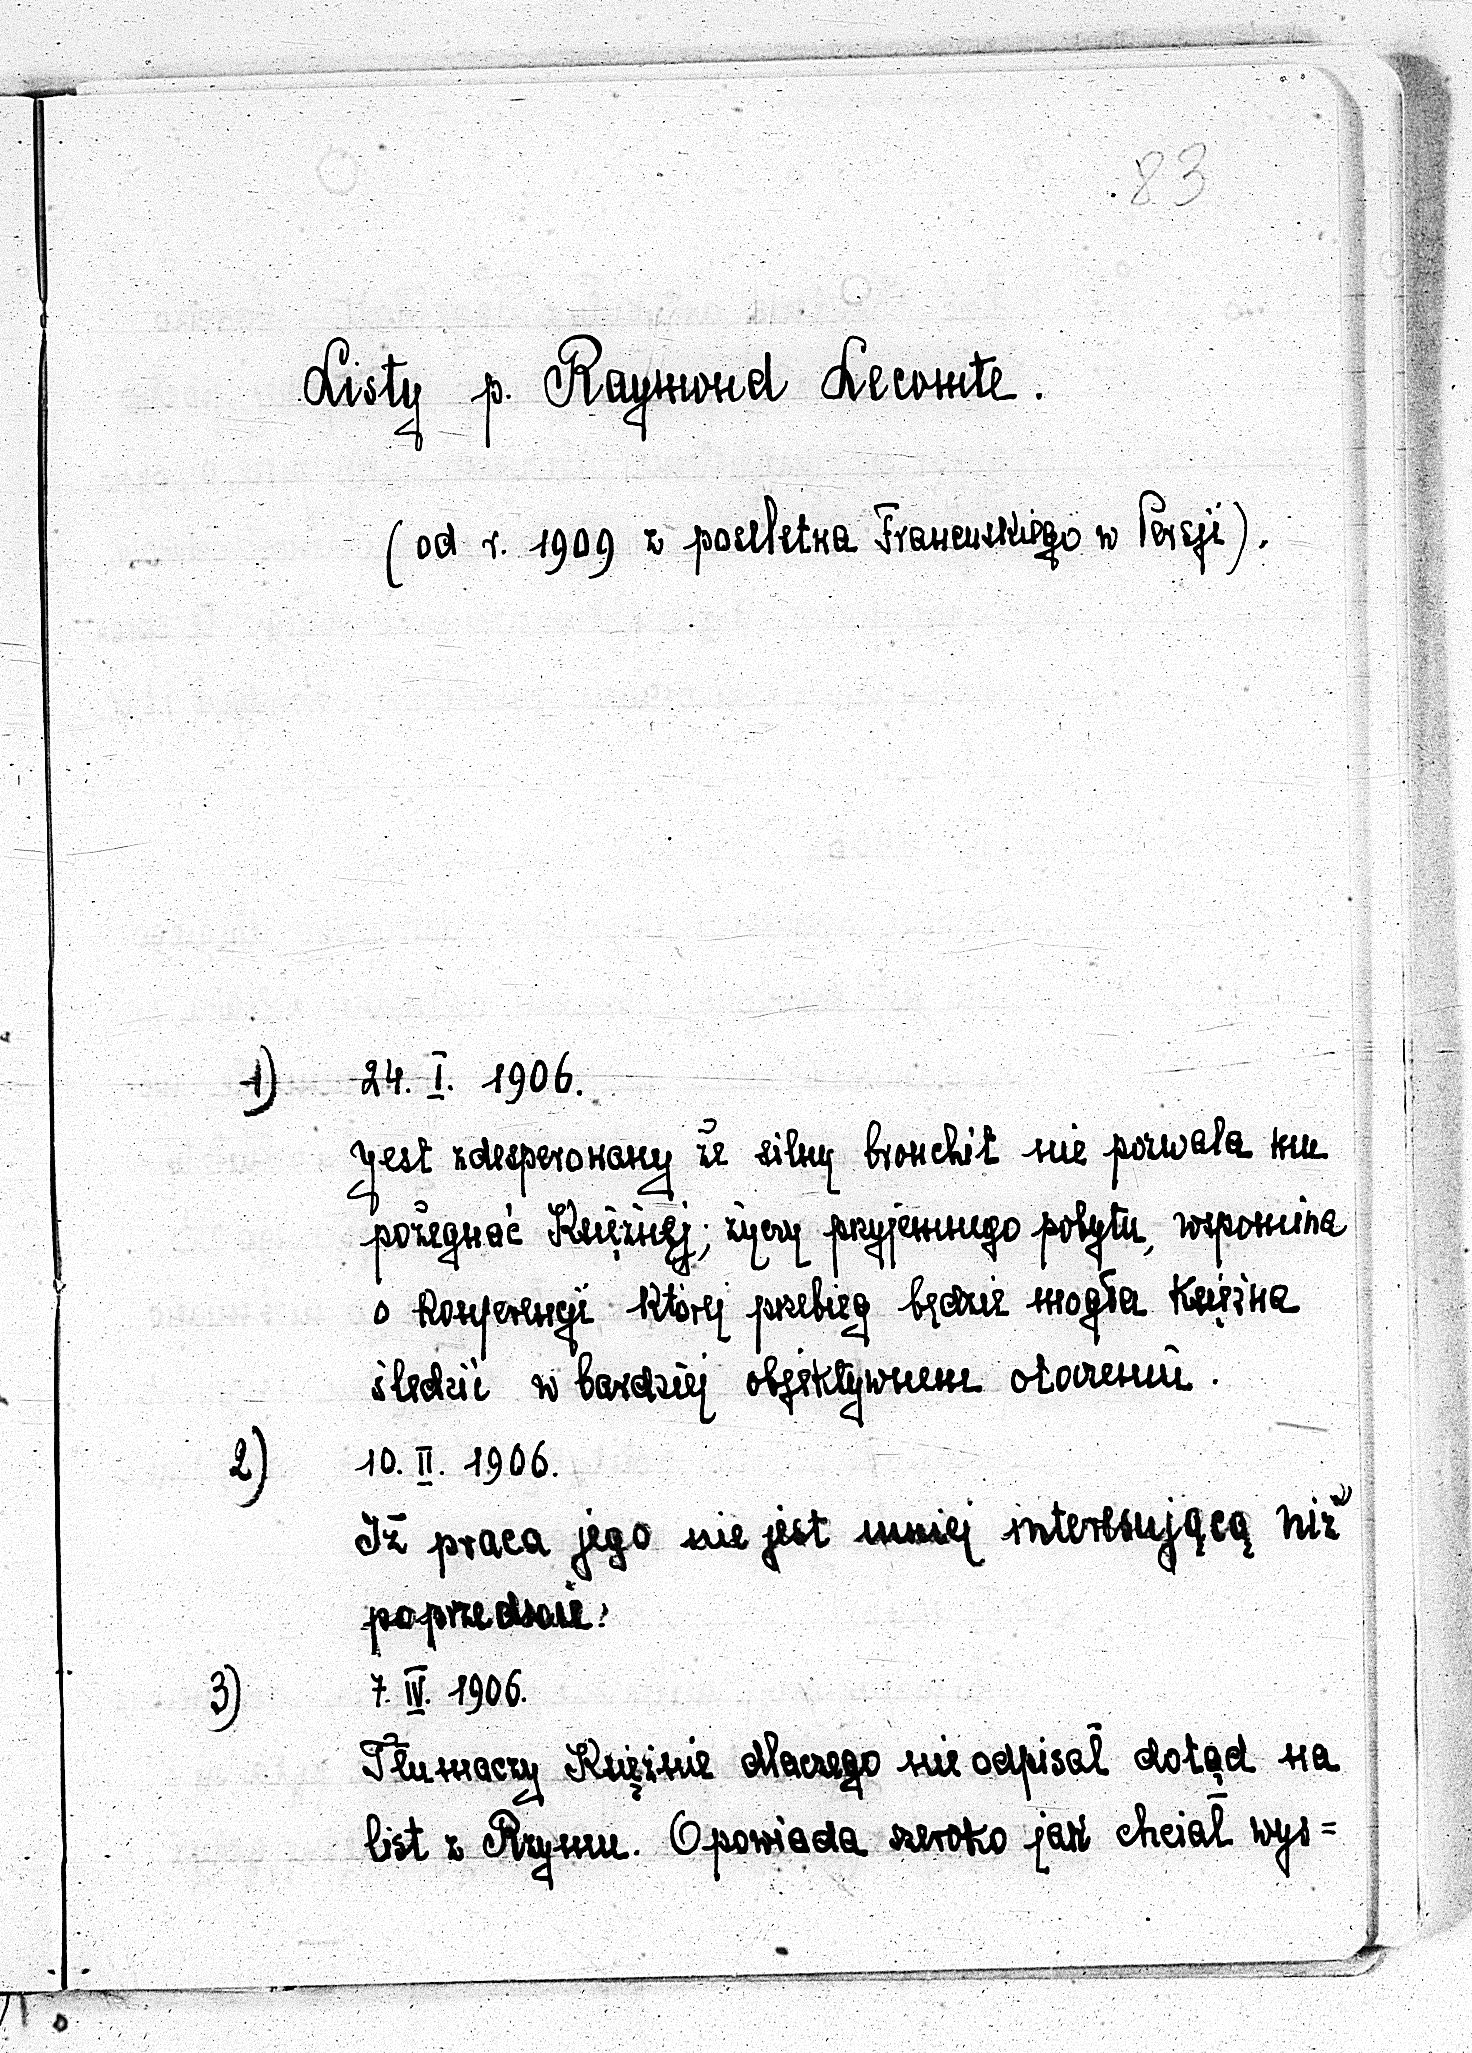 83
Listy p. Raymond Lecomte.
(od r. 1909 z poselstwa Francuskiego w Persji).
1) 24. I. 1906.
Jest zdesperowany że silny bronchit nie pozwala mu
pożegnać Księżnej; życzy przyjemnego pobytu, wspomina
o Konferencji której przebieg będzie mogła Księżna
śledzić w bardziej objektywnem otoczeniu.
2) 10. II. 1906.
Iż praca jego nie jest mniej interesującą niż
poprzednie.
3) 7. IV. 1906.
Tłumaczy Księżnie dlaczego nie odpisał dotąd na
list z Rzymu. Opowiada szeroko jak chciał wys=